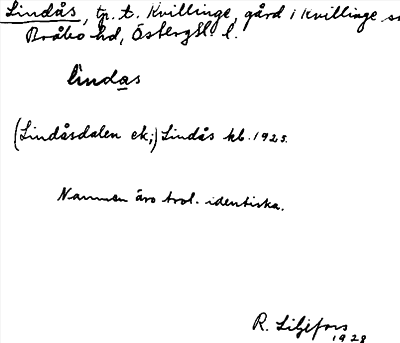 Lindås, tp. t. Kvillinge, gård i Kvillinge
Bråbo hd, Östergtl. l.
lindas
(Lindåsdalen ek;) Lindås kb. 1925.
Namnen äro trol. identiska.
R. Liljefors
1928